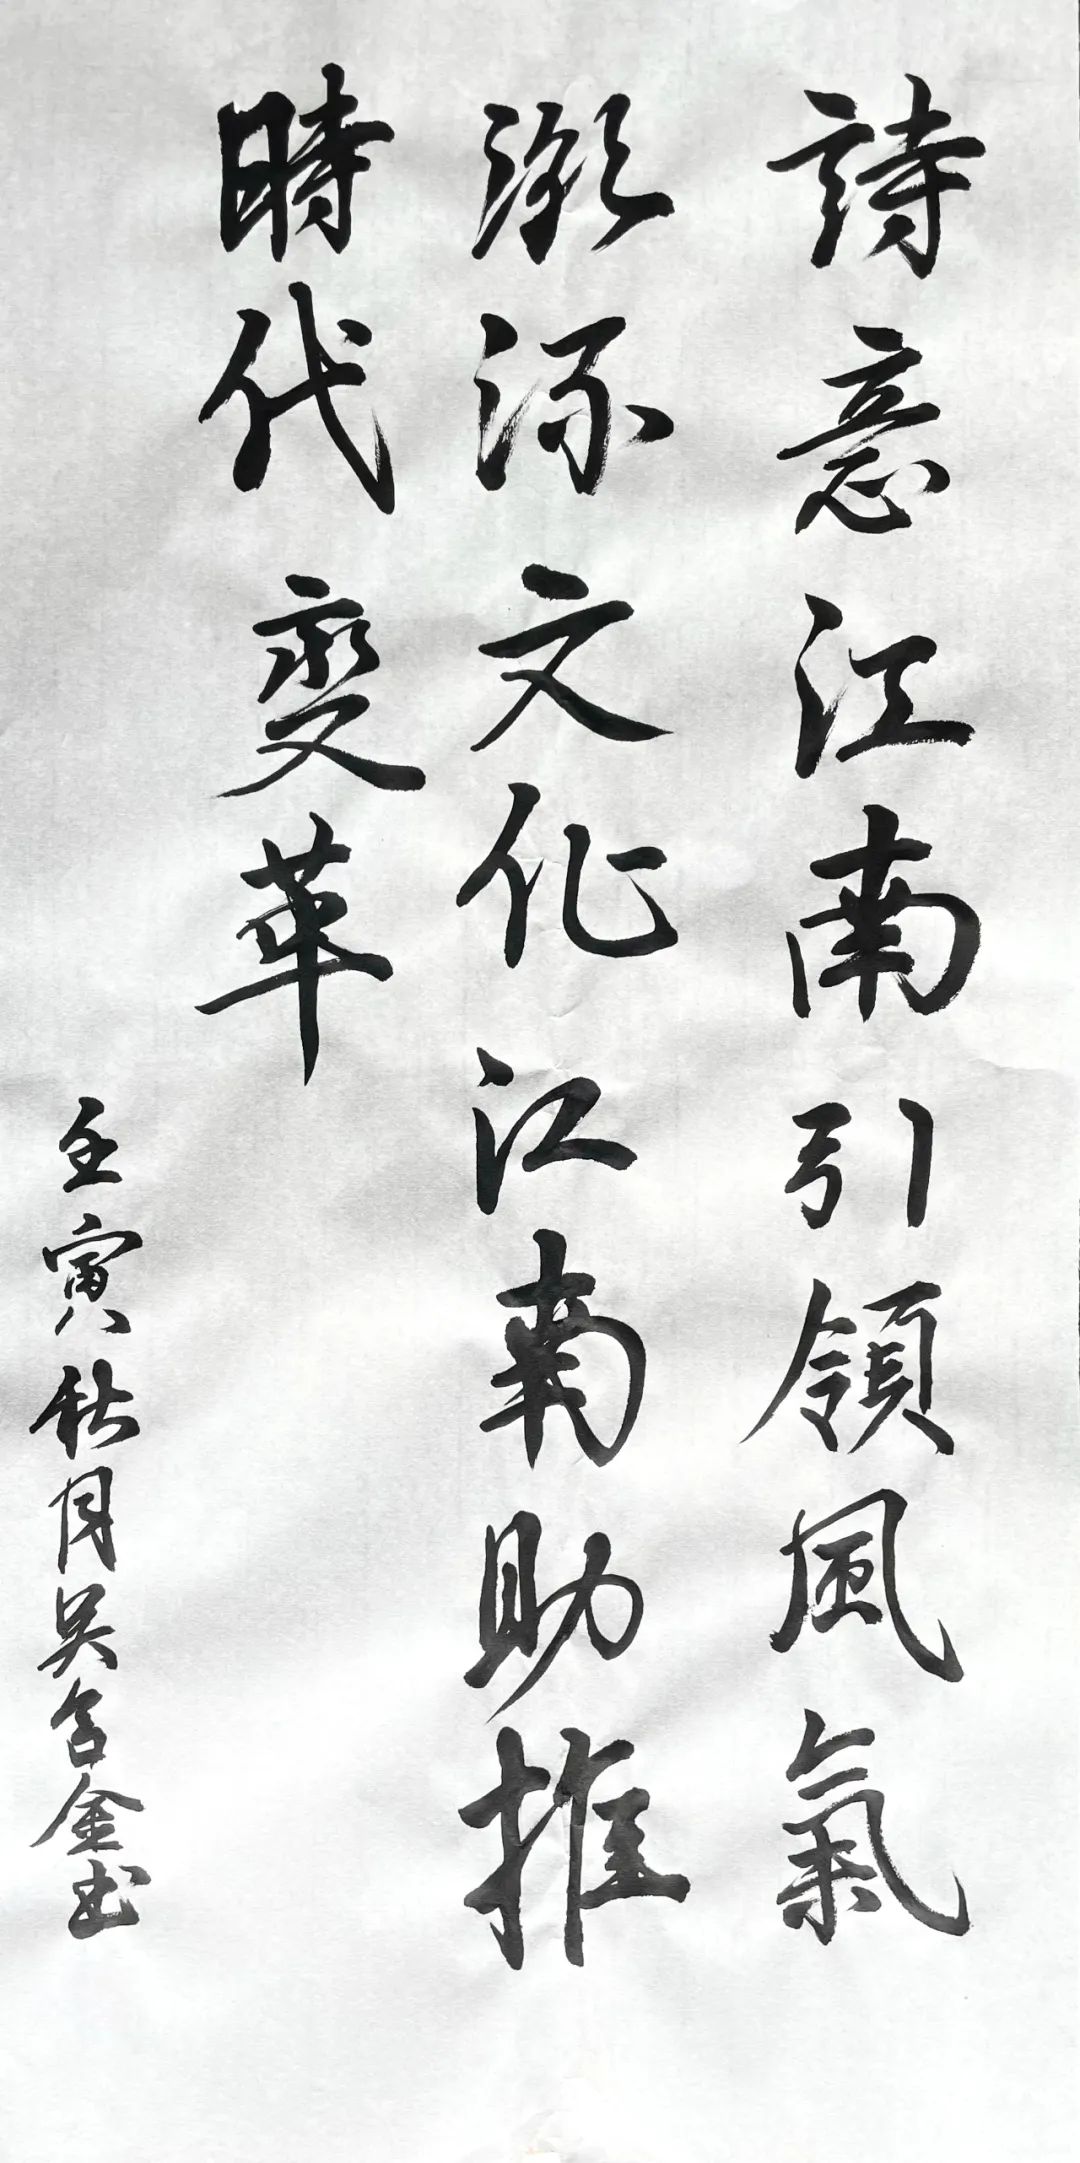 詩意江南引領風氣
源文化江南助推
時代變革
壬寅秋月吴含金书